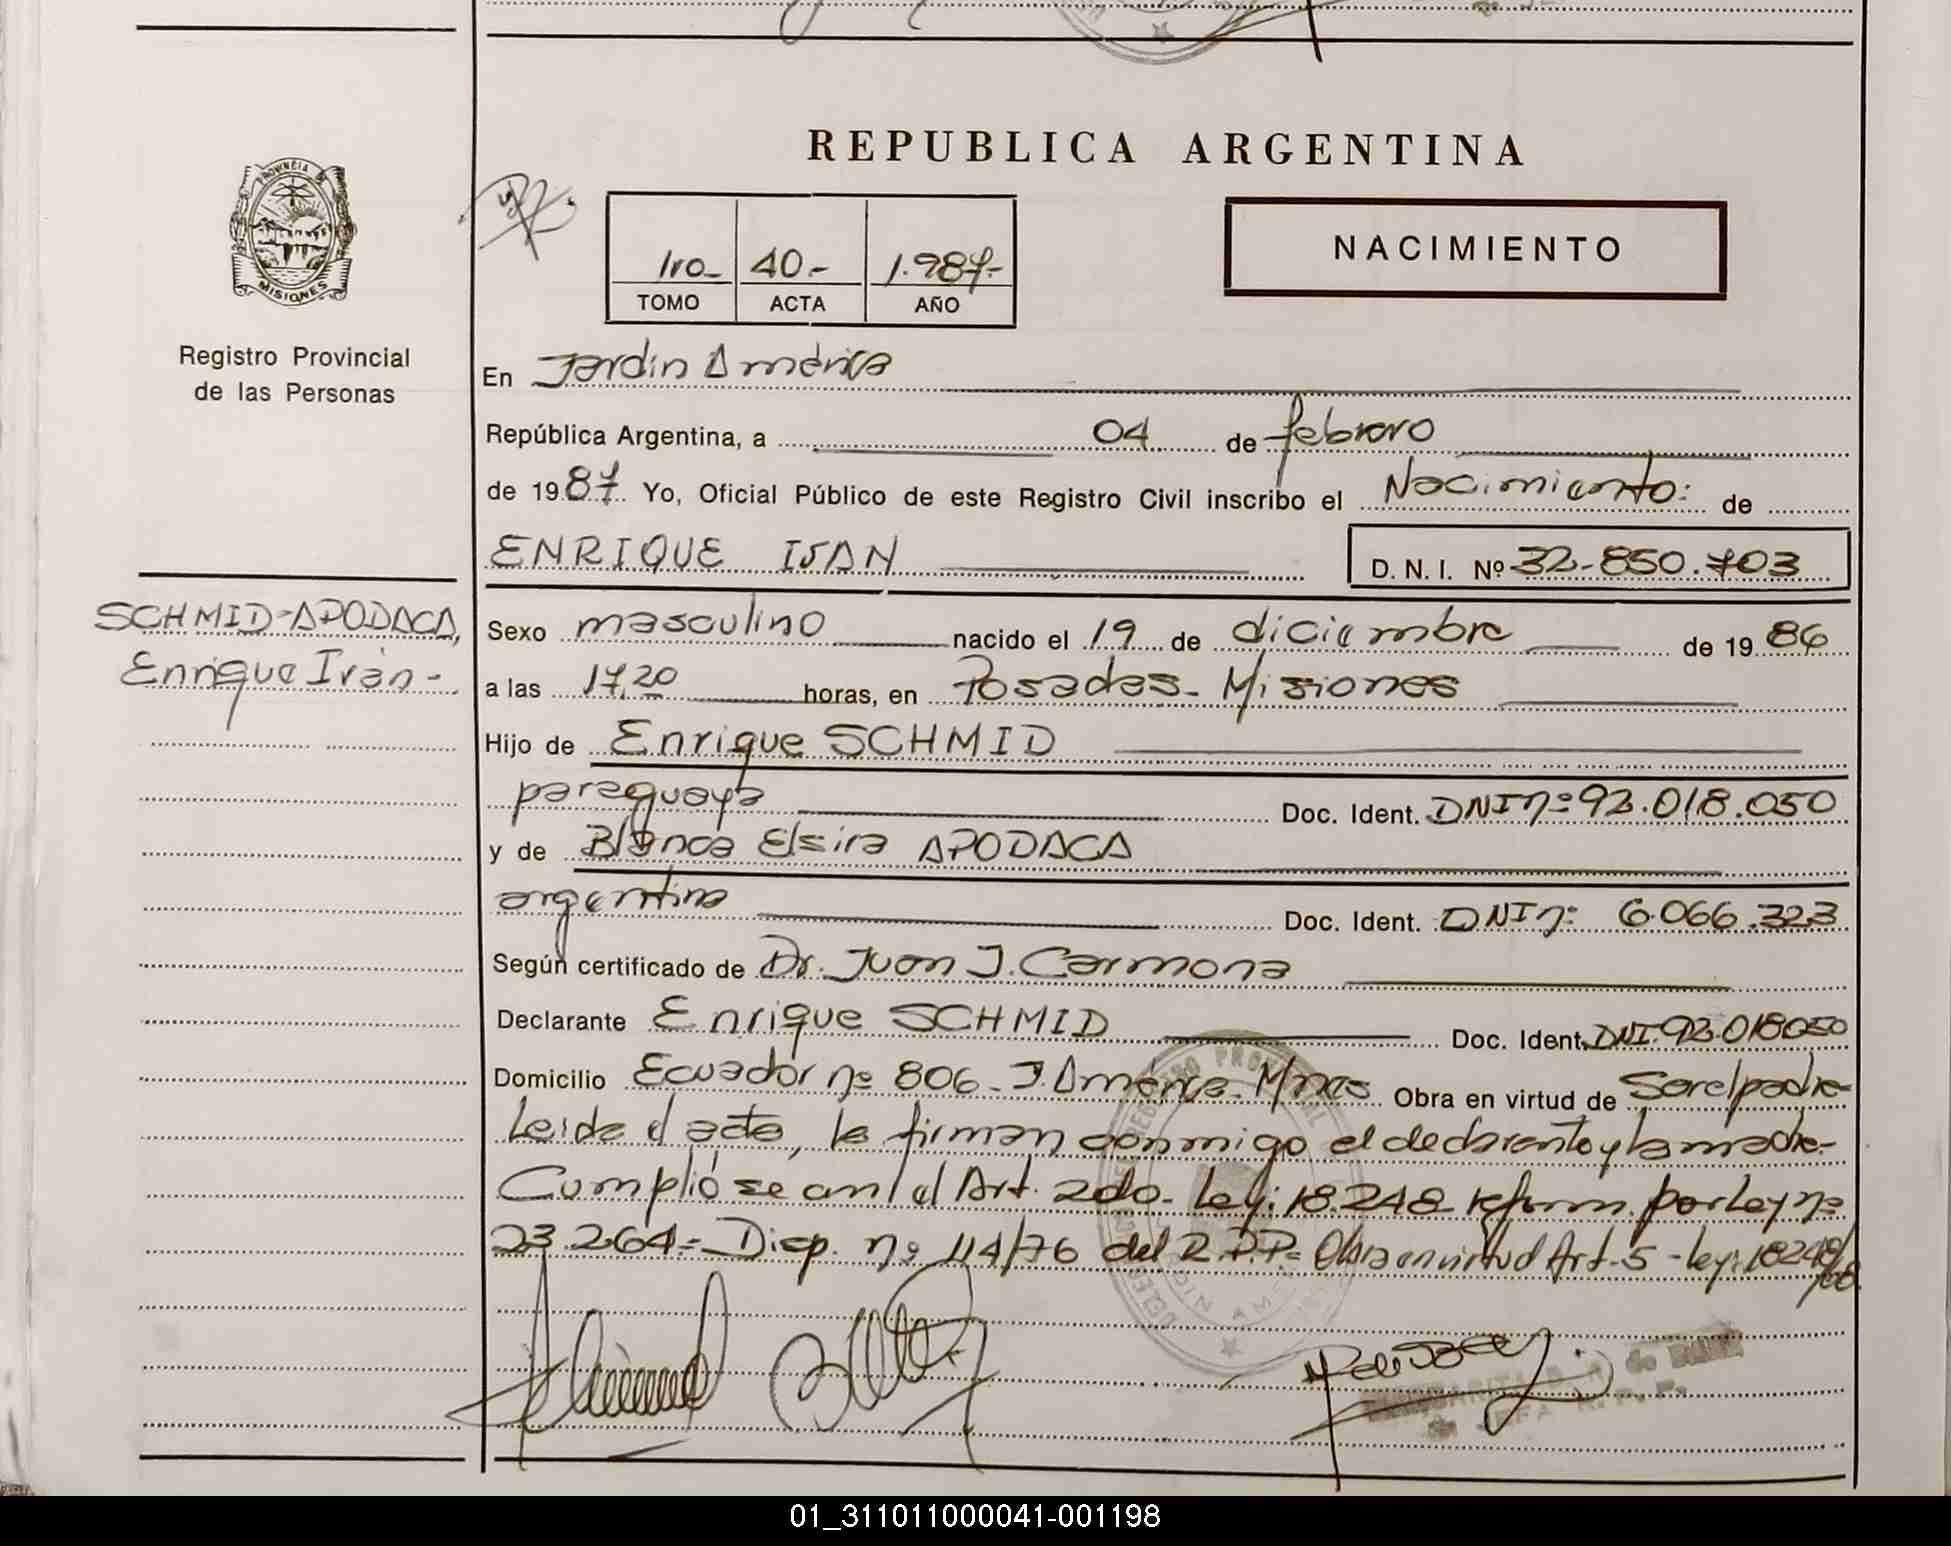 REPUBLICA ARGENTINA
PROVINCIA DE
MISIONES
Registro Provincial
de las Personas
1ro- 40.- 1.987.-
TOMO ACTA AÑO
NACIMIENTO
En Jardín América
República Argentina, a 04 de febrero
de 1987 Yo, Oficial Público de este Registro Civil inscribo el Nacimiento: de
ENRIQUE IVAN D. N. I. Nº 32-850.703
SCHMID-APODACA,
Enrique Iván-
Sexo masculino nacido el 19 de diciembre de 1986
a las 17,20 horas, en Posadas- Misiones
Hijo de Enrique SCHMID
paraguaya Doc. Ident. DNI nº 92.018.050
y de Blanca Elsira APODACA
argentina Doc. Ident. DNI nº 6.066.323
Según certificado de Dr. Juan J. Carmona
Declarante Enrique SCHMID Doc. Ident. DNI. 92.018050
Domicilio Ecuador nº 806- J. América- Mnes Obra en virtud de Ser el padre
Leída el acta, la firman conmigo el declarante y la madre-
Cumplióse con el Art. 2do- Ley: 18.248 reform. por Ley nº
23.264= Disp. nº 114/76 del R.P.P= Obra en virtud Art. 5 - ley: 18248/
R. P. P.
01_311011000041-001198